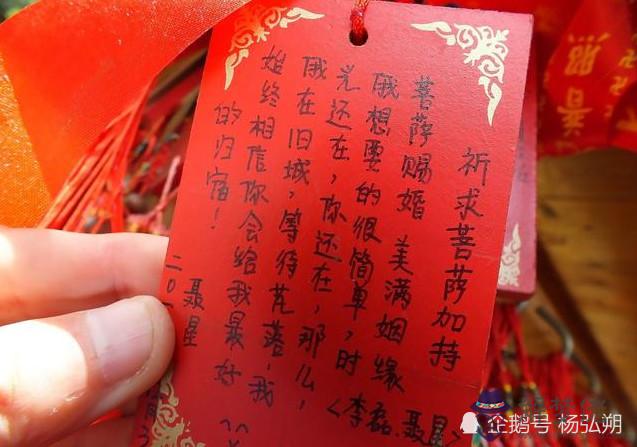 祈求菩萨加持
菩萨赐婚 美满姻缘 <李磊.聂星
俄想要的很简单，时
光还在，你还在，那么，
俄在旧城，等待落，我
始终相信你会给我最好
的归宿！
聂星
二0
普照
企鹅号 杨弘朔